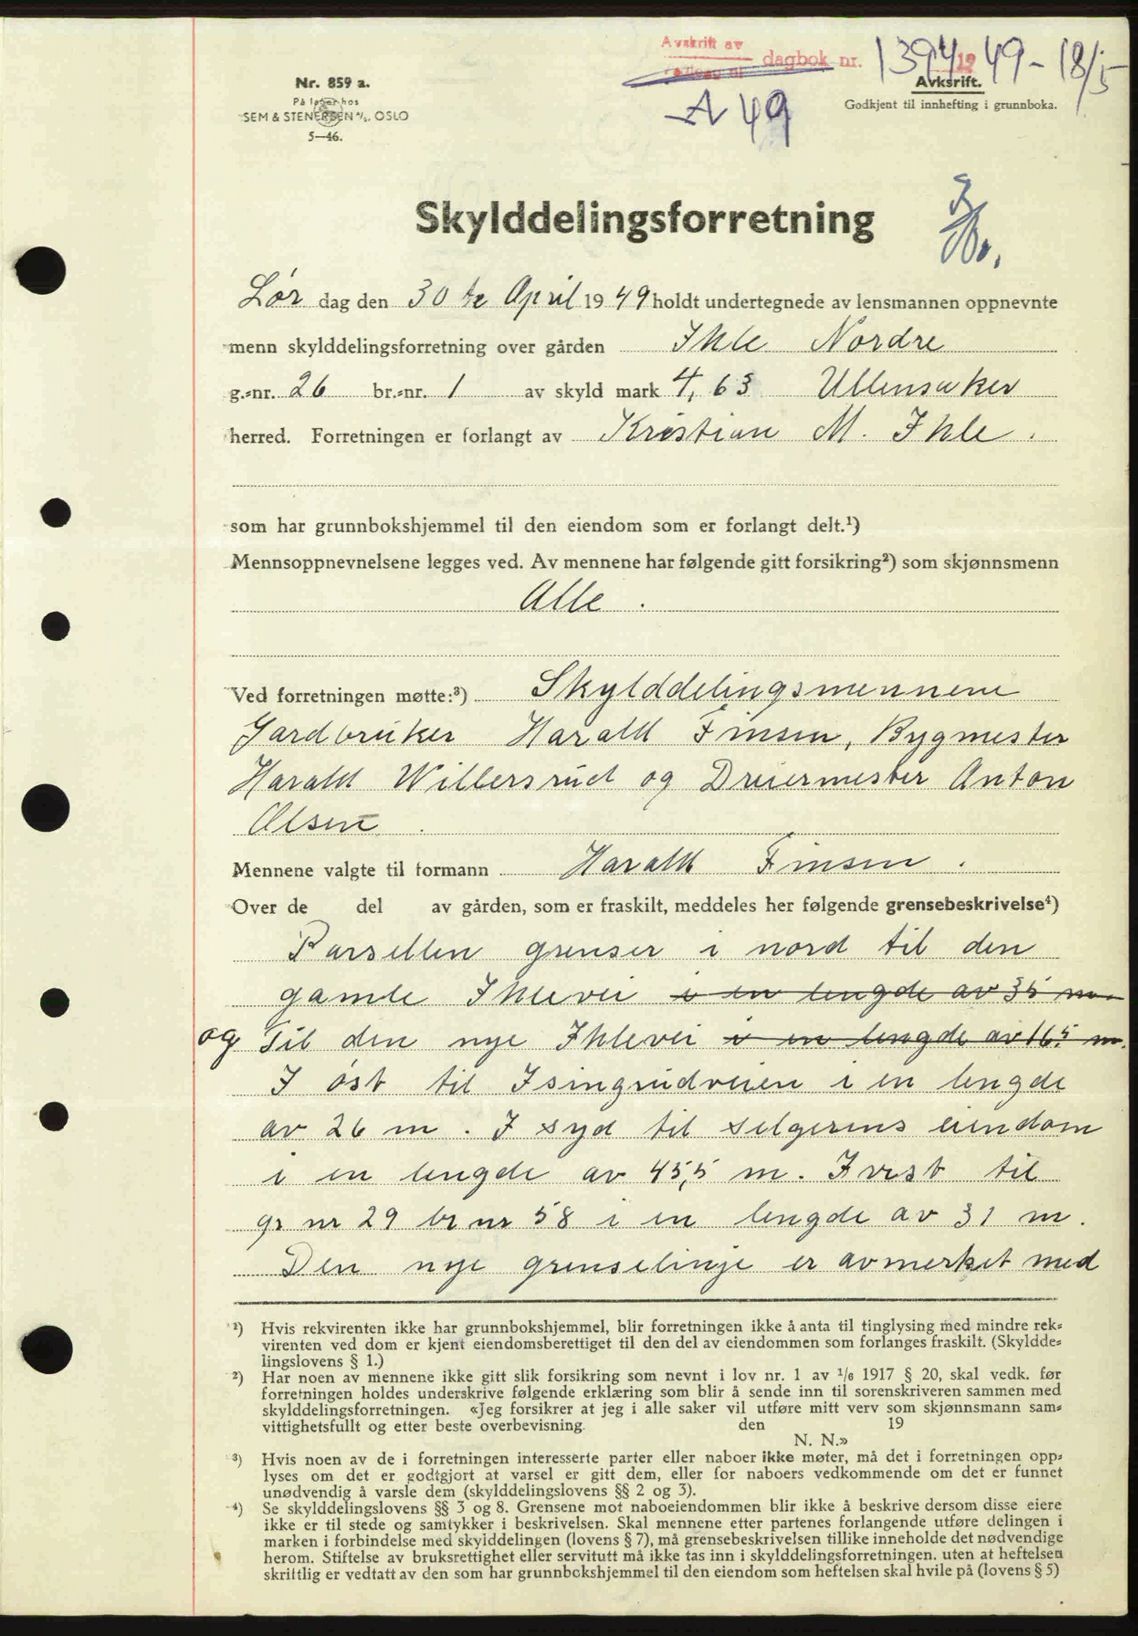 Avskrift av
dagbok nr. 1394 19 49 - 18/5
A 49
Nr. 859 a.
På lager hos
SEM & STENERSEN A/S. OSLO
5—46.
Avksrift.
Godkjent til innhefting i grunnboka.
Skylddelingsforretning
Lør dag den 30 te April 19 49 holdt undertegnede av lensmannen oppnevnte
menn skylddelingsforretning over gården Ihle Nordre
g.-nr. 26 br.-nr. 1 av skyld mark 4,63 Ullensaker
herred. Forretningen er forlangt av Kristian M. Ihle.
som har grunnbokshjemmel til den eiendom som er forlangt delt.¹)
Mennsoppnevnelsene legges ved. Av mennene har følgende gitt forsikring²) som skjønnsmenn
Alle.
Ved forretningen møtte:³) Skylddelingsmennene
Gardbruker Harald Finsen, Bygmester
Harald Willersrud og Dreiermester Anton
Olsen.
Mennene valgte til formann Harald Finsen.
Over de del av gården, som er fraskilt, meddeles her følgende grensebeskrivelse⁴)
Parsellen grenser i nord til den
gamle Ihlevei i en lengde av 35 m.
og Til den nye Ihlevei i en lengde av 16,5 m.
I øst til Isingrudveien i en lengde
av 26 m. I syd til selgerens eiendom
i en lengde av 45,5 m. I vest til
gr nr 29 br nr 58 i en lengde av 31 m.
Den nye grenselinje er avmerket med
¹) Hvis rekvirenten ikke har grunnbokshjemmel, blir forretningen ikke å anta til tinglysing med mindre rek-
virenten ved dom er kjent eiendomsberettiget til den del av eiendommen som forlanges fraskilt. (Skyldde-
lingslovens § 1.)
²) Har noen av mennene ikke gitt slik forsikring som nevnt i lov nr. 1 av 1/6 1917 § 20, skal vedk. før
forretningen holdes underskrive følgende erklæring som blir å sende inn til sorenskriveren sammen med
skylddelingsforretningen. «Jeg forsikrer at jeg i alle saker vil utføre mitt verv som skjønnsmann sam-
vittighetsfullt og etter beste overbevisning. den 19
N. N.»
³) Hvis noen av de i forretningen interesserte parter eller naboer ikke møter, må det i forretningen opp-
lyses om det er godtgjort at varsel er gitt dem, eller for naboers vedkommende om det er funnet
unødvendig å varsle dem (skylddelingslovens §§ 2 og 3).
⁴) Se skylddelingslovens §§ 3 og 8. Grensene mot naboeiendommen blir ikke å beskrive dersom disse eiere
ikke er til stede og samtykker i beskrivelsen. Skal mennene etter partenes forlangende utføre delingen i
marken i forbindelse med skylddelingen (lovens § 7), må grensebeskrivelsen tillike inneholde det nødvendige
herom. Stiftelse av bruksrettighet eller servitutt må ikke tas inn i skylddelingsforretningen. uten at heftelsen
skriftlig er vedtatt av den som har grunnbokshjemmel til den eiendom som heftelsen skal hvile på (lovens § 5)